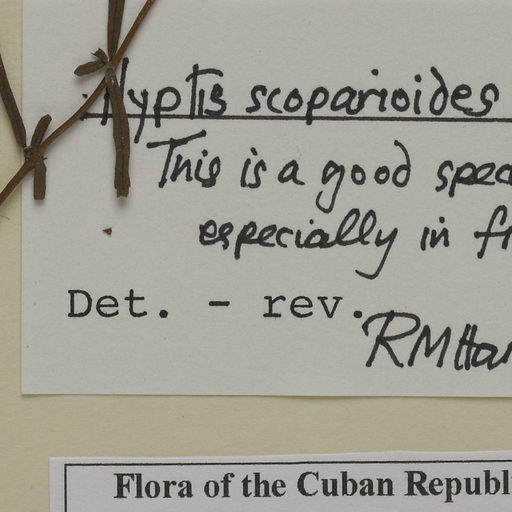 Hyptis scoparioides
This is a good spec
especially in fr
Det. - rev.
RMHar
Flora of the Cuban Republ